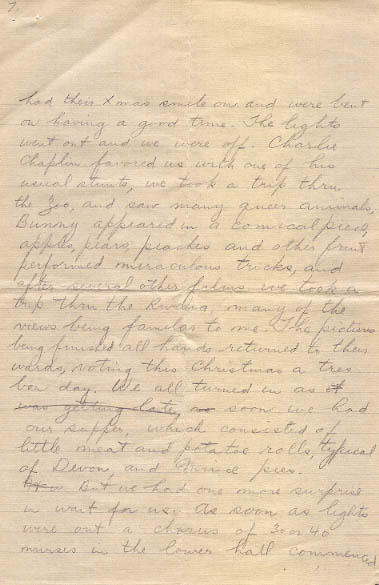 7.
had their Xmas smile on and were bent
on having a good time. The lights
went out and we were off. Charlie
Chaplin favored us with one of his
usual stunts, we took a trip thru
the Zoo, and saw many queer animals,
Bunny appeared in a comical piece,
apples, pears, peaches and other fruit
performed miraculous tricks, and
after several other films we took a
trip thru the Riviera, many of the
views being familar to me. The pictures
being finished all hands returned to their
wards, voting this Christmas a tres
bon day. We all turned in as it
was getting late, as soon we had
our supper, which consisted of
little meat and potatoe rolls, typical
of Devon, and Mince pies.
But we had one more surprise
in wait for us. As soon as lights
were out a chorus of 30 or 40
nurses in the lower hall commenced